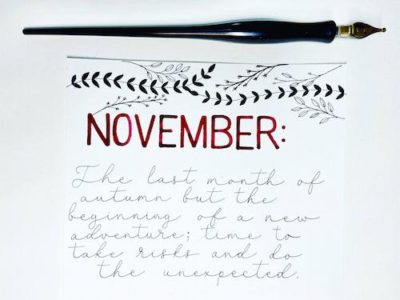 NOVEMBER:
The last month of
autumn but the
beginning of a new
adventure; time to
take risks and do
the unexpected.